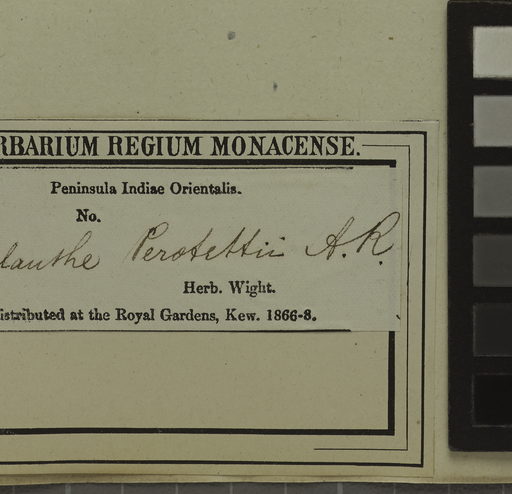 RBARIUM REGIUM MONACENSE.
Peninsula Indiae Orientalis.
No.
lanthe Perotettii A.R.
Herb. Wight.
istributed at the Royal Gardens, Kew. 1866-8.